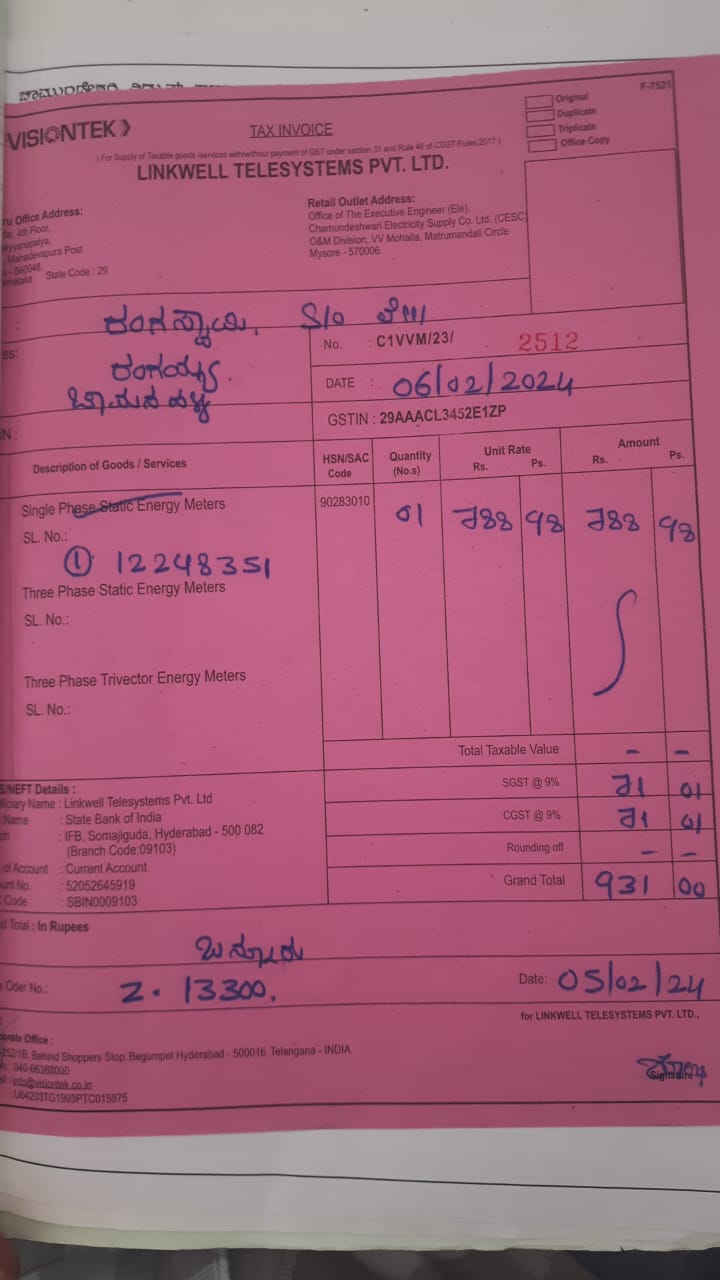 VISIONTEK
TAX INVOICE
F-7531
Original
Duplicate
Triplicate
Office Copy
( For Supply of Taxable goods /services with/without payment of GST under section 31 and Rule 46 of CGST Rules,2017 )
LINKWELL TELESYSTEMS PVT. LTD.
ru Office Address:
de, 4th Floor,
ayyanapalya,
, Mahadevapura Post
- 560048.
arnataka State Code : 29.
Retail Outlet Address:
Office of The Executive Engineer (Ele),
Chamundeshwari Electricity Supply Co. Ltd. (CESC)
O&M Division, VV Mohalla, Matrumandali Circle
Mysore - 570006.
: ರಂಗಸ್ವಾಮಿ. S/o
ss:
No. : C1VVM/23/ 2512
DATE : 06/02/2024
N :
GSTIN : 29AAACL3452E1ZP
Description of Goods / Services
HSN/SAC Code
Quantity (No.s)
Unit Rate Rs. Ps.
Amount Rs. Ps.
Single Phase Static Energy Meters 90283010 01 788 98 788 98
SL. No.:
① 12248351
Three Phase Static Energy Meters
SL. No.:
Three Phase Trivector Energy Meters
SL. No.:
Total Taxable Value - -
SGST @ 9% 71 01
CGST @ 9% 71 01
Rounding off - -
Grand Total 931 00
S/NEFT Details :
ficiary Name : Linkwell Telesystems Pvt. Ltd
Name : State Bank of India
ch : IFB, Somajiguda, Hyderabad - 500 082
(Branch Code:09103)
of Account : Current Account
unt No. : 52052645919
Code : SBIN0009103
d Total : In Rupees
Oder No.: Z. 13300.
Date: 05/02/24
for LINKWELL TELESYSTEMS PVT. LTD.,
porate Office :
-252/1B, Behind Shoppers Stop, Begumpet Hyderabad - 500016. Telangana - INDIA
No : 040-66388000
il : info@visiontek.co.in
: U64203TG1993PTC015875
Signature